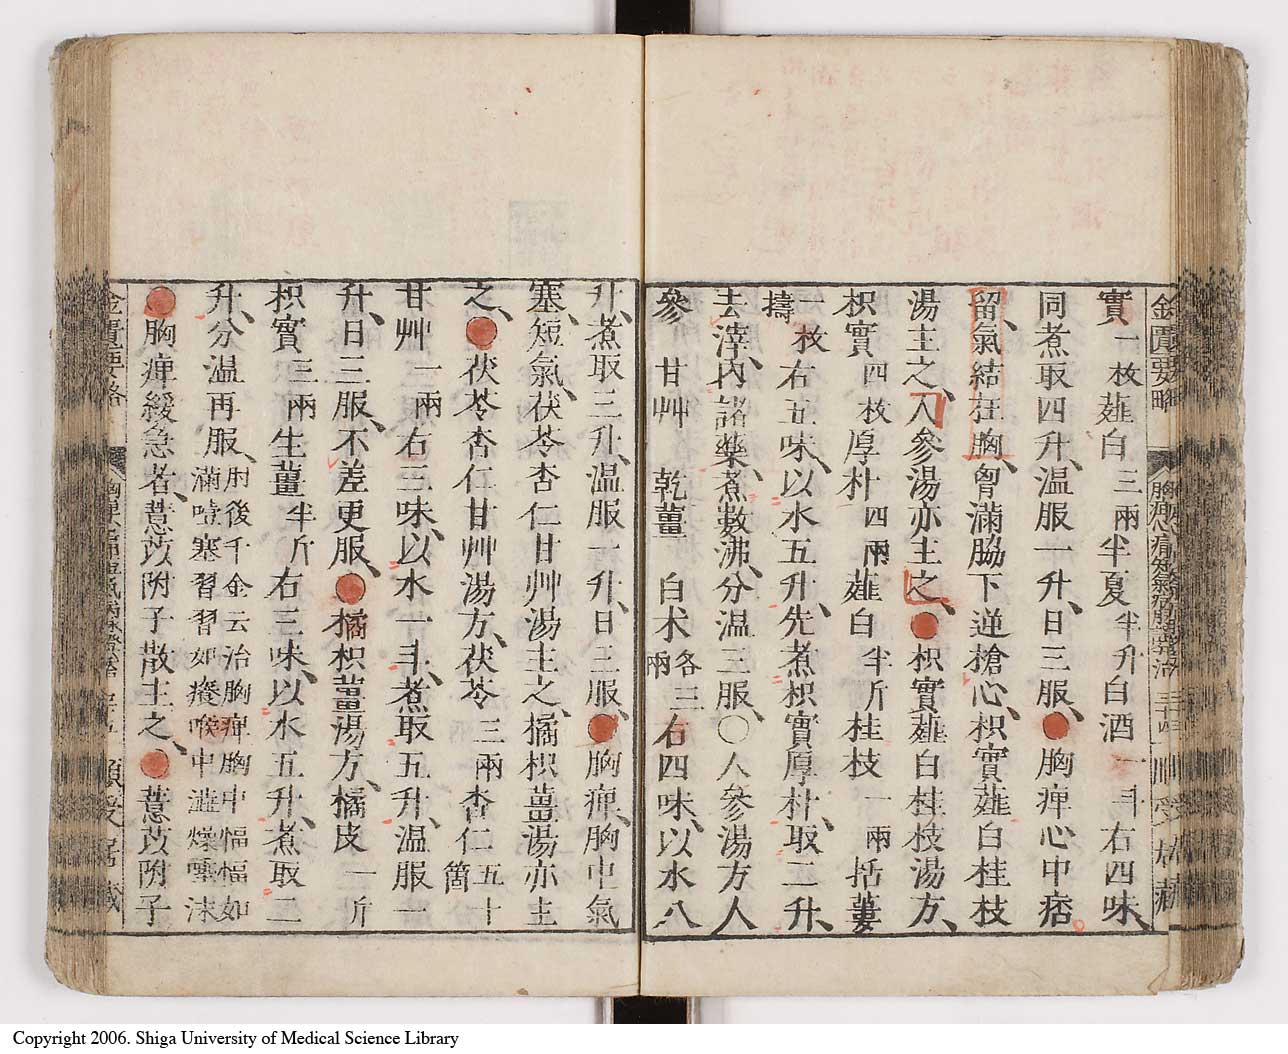 金匱要略 胸痺心痛短氣病脈證治 三十四 順受居藏
實一枚薤白三兩半夏半升白酒一斗右四味、
同煮取四升、温服一升、日三服、●胸痺心中痞
留氣結在胸、胷滿脇下逆搶心、枳實薤白桂枝
湯主之、人參湯亦主之、●枳實薤白桂枝湯方、
枳實四枚厚朴四兩薤白半斤桂枝一兩括蔞
一枚擣右五味、以水五升、先煮枳實厚朴、取二升、
去滓、内諸藥、煮數沸、分温三服、○人參湯方人
參 甘艸 乾薑 白朮各三兩右四味、以水八
升、煮取三升、温服一升、日三服、●胸痺、胸中氣
塞、短氣、茯苓杏仁甘艸湯主之、橘枳薑湯亦主
之、●茯苓杏仁甘艸湯方、茯苓三兩杏仁五十箇
甘艸一兩右三味、以水一斗、煮取五升、温服一
升、日三服、不差更服、●橘枳薑湯方、橘皮一斤
枳實三兩生薑半斤右三味、以水五升、煮取二
升、分温再服、肘後千金云治胸痺胸中愊愊如滿噎塞習習如癢喉中澁燥唾沫
●胸痺緩急者、薏苡附子散主之、●薏苡附子
金匱要略 順受居藏
Copyright 2006. Shiga University of Medical Science Library